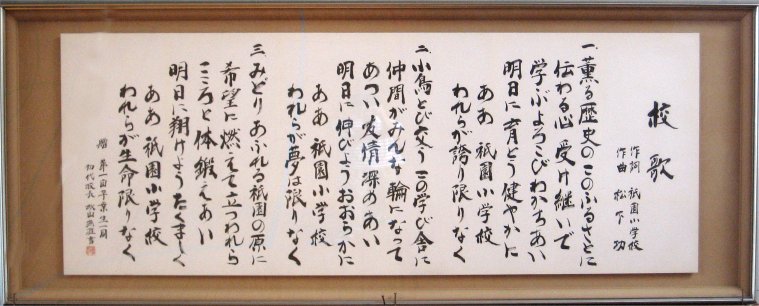 校歌
作詞 祇園小学校
作曲 松下功
一、薫る歴史のこのふるさとに
伝わる心受け継いで
学ぶよろこびわかちあい
明日に育とう健やかに
ああ 祇園小学校
われらが誇り限りなく
二、小鳥とび交うこの学び舎に
仲間がみんな輪になって
あつい友情深めあい
明日に伸びようおおらかに
ああ 祇園小学校
われらが夢は限りなく
三、みどりあふれる祇園の原に
希望に燃えて立つわれら
こころと体鍛えあい
明日に翔けようたくましく
ああ 祇園小学校
われらが生命限りなく
贈 第一回卒業生一同
初代校長 秋山 書